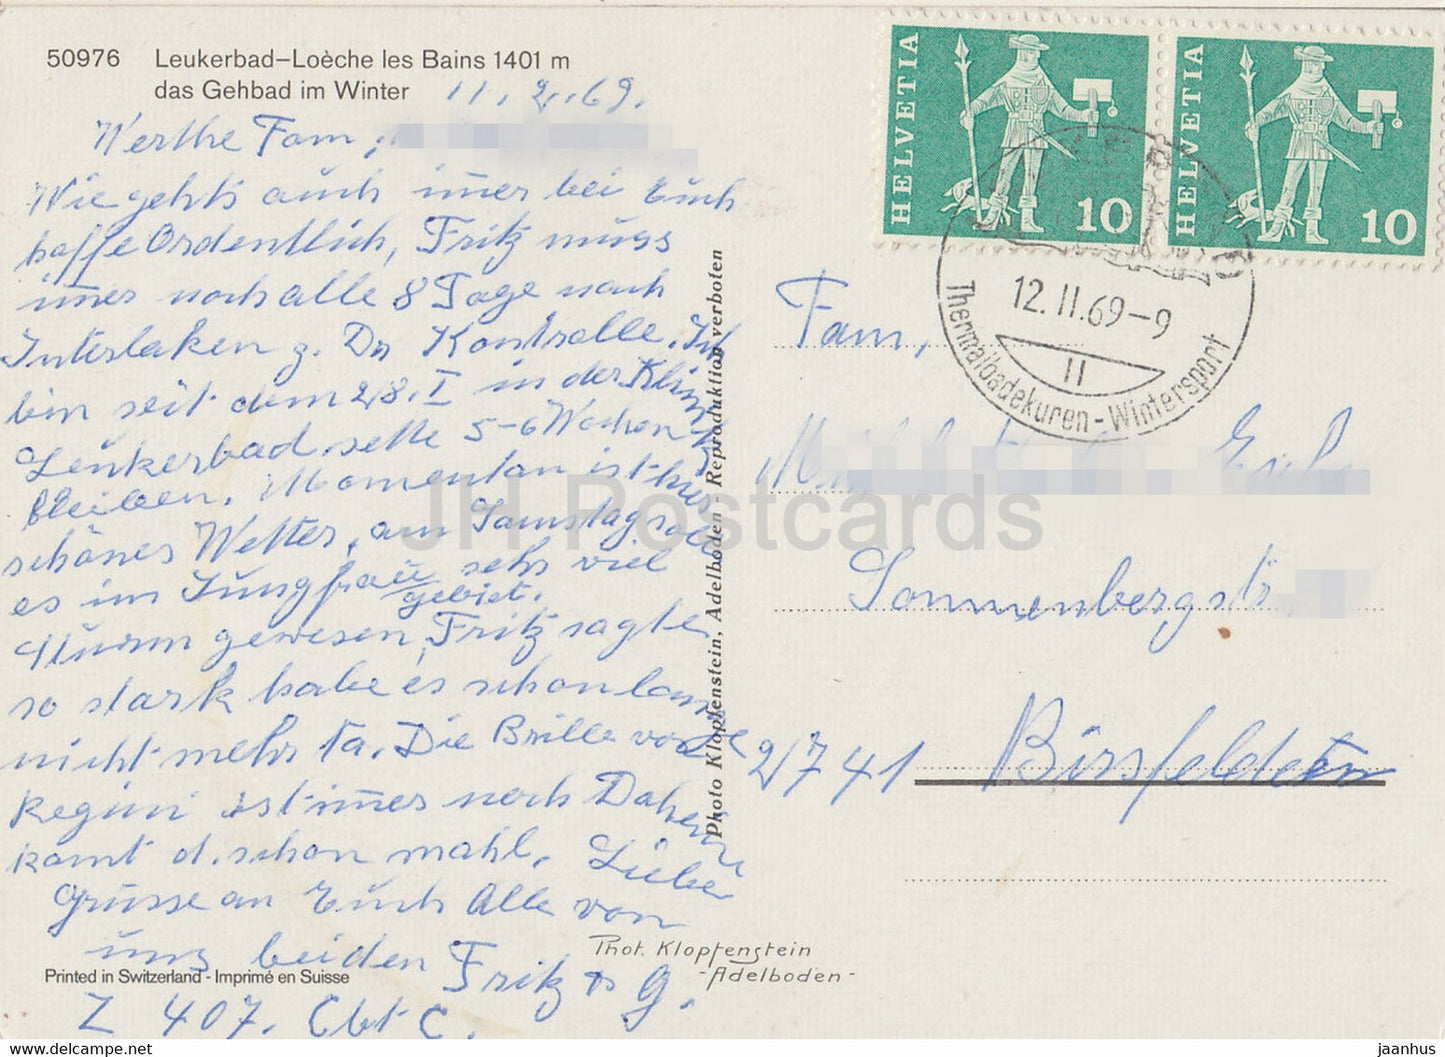 50976 Leukerbad-Loèche les Bains 1401 m
das Gehbad im Winter 11. 2. 69.
Werthe Fam.
Wie gehts auch imer bei Euch
hoffe Ordentlich, Fritz muss
imer noch alle 8 Tage nach
Interlaken z. Dr Kontrolle. Ich
bin seit dem 28. I in der Klinik
Leukerbad. sollte 5-6 Wochen
bleiben. Momentan ist hier
schönes Wetter, am Samstag soll
es im Jungfrau gebiet. sehr viel
Sturm gewesen, Fritz sagte
so stark habe es schon lange
nicht mehr ta. Die Brille von
Regini ist imer noch Daheim
komt d. schon mahl. Liebe
Grüsse an Euch Alle von
uns beiden Fritz & G.
Z 407. Cbt C.
Printed in Switzerland - Imprimé en Suisse
Photo Klopfenstein, Adelboden - Reproduktion verboten
Phot. Klopfenstein
- Adelboden -
HELVETIA 10
HELVETIA 10
12. II. 69-9
11
Thermalbadekuren - Wintersport
Fam,
Sonnenbergstr
2/741 Birsfelden
JH Postcards
hosted on www.delcampe.net
jaanhus